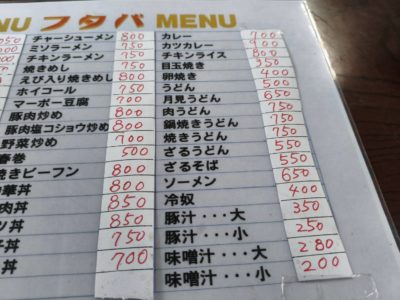 NU フタバ MENU
050 チャーシューメン 800 カレー 700
ミソラーメン 750 カツカレー 900
チキンラーメン 750 チキンライス 800
焼きめし 700 目玉焼き 350
えび入り焼きめし 800 卵焼き 400
ホイコール 750 うどん 500
マーボー豆腐 700 月見うどん 650
豚肉炒め 800 肉うどん 750
豚肉塩コショウ炒め 800 鍋焼きうどん 750
野菜炒め 700 焼きうどん 750
春巻 500 ざるうどん 550
焼きビーフン 800 ざるそば 550
華丼 800 ソーメン 650
肉丼 850 冷奴 400
丼 850 豚汁・・・大 350
丼 750 豚汁・・・小 250
丼 700 味噌汁・・・大 280
味噌汁・・・小 200